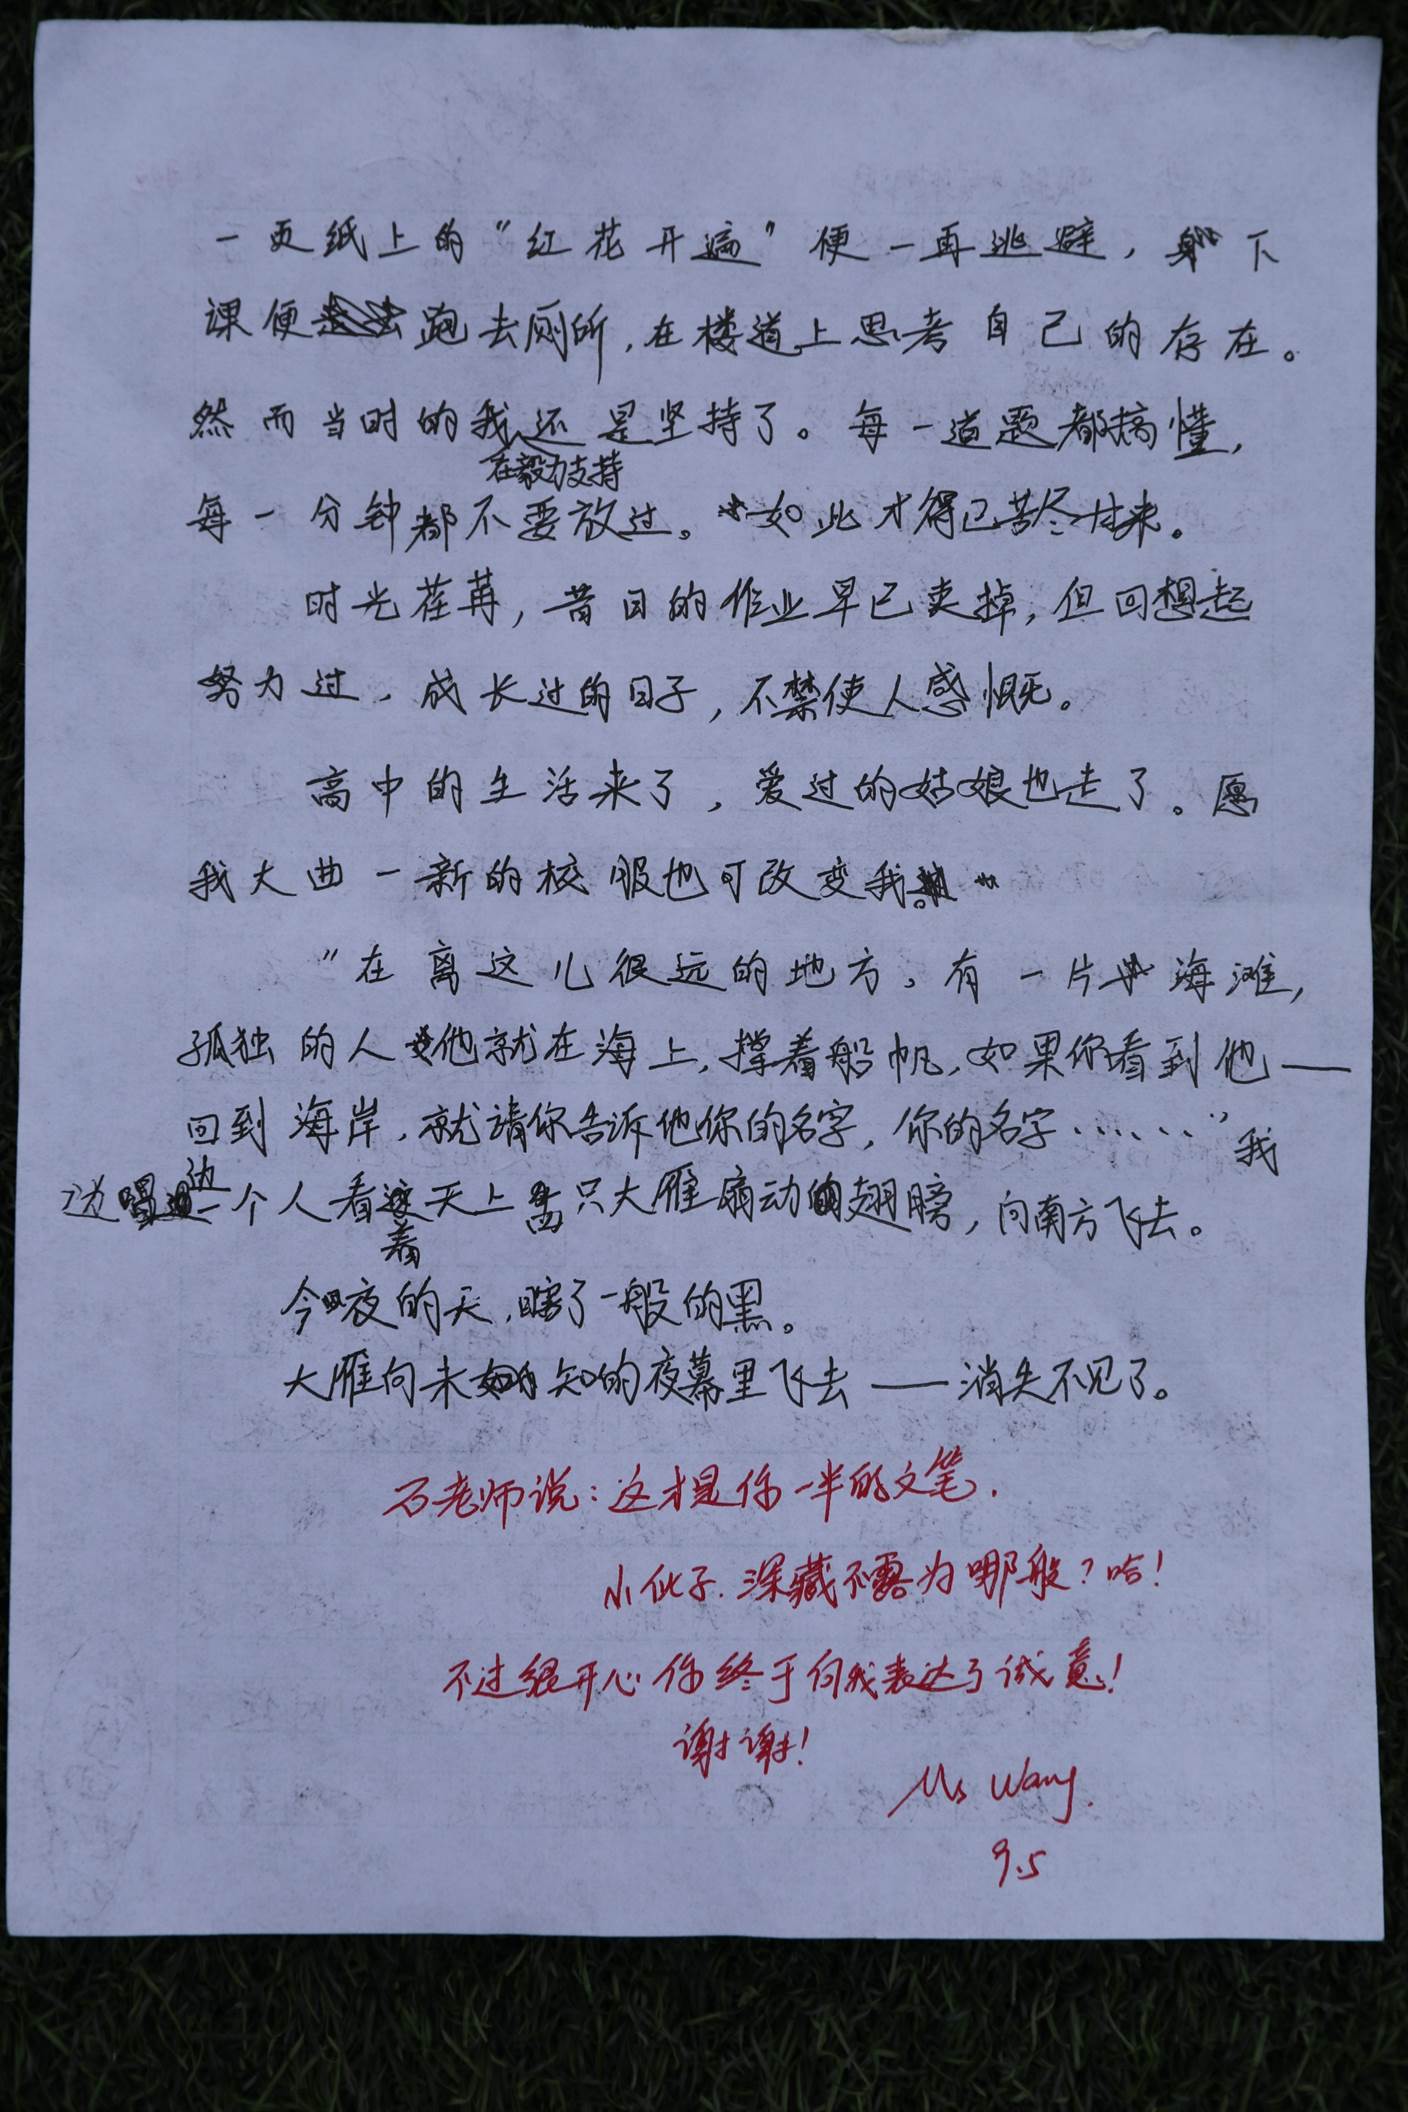 一页纸上的“红花开遍”便一再逃避，下
课便跑去厕所，在楼道上思考自己的存在。
然而当时的我在毅力支持还是坚持了。每一道题都搞懂，
每一分钟都不要放过。如此才得已苦尽甘来。
时光荏苒，昔日的作业早已卖掉，但回想起
努力过，成长过的日子，不禁使人感慨。
高中的生活来了，爱过的姑娘也走了。愿
我大曲一新的校服也可改变我。
“在离这儿很远的地方，有一片海滩，
孤独的人他就在海上，撑着船帆，如果你看到他——
回到海岸，就请你告诉他你的名字，你的名字……”我
边唱边一个人看着天上一只大雁扇动的翅膀，向南方飞去。
今夜的天，瞎了一般的黑。
大雁向未知的夜幕里飞去——消失不见了。
石老师说：这才是你一半的文笔.
小伙子.深藏不露为哪般？哈！
不过很开心你终于向我表达了诚意！
谢谢！
Ms Wang.
9.5